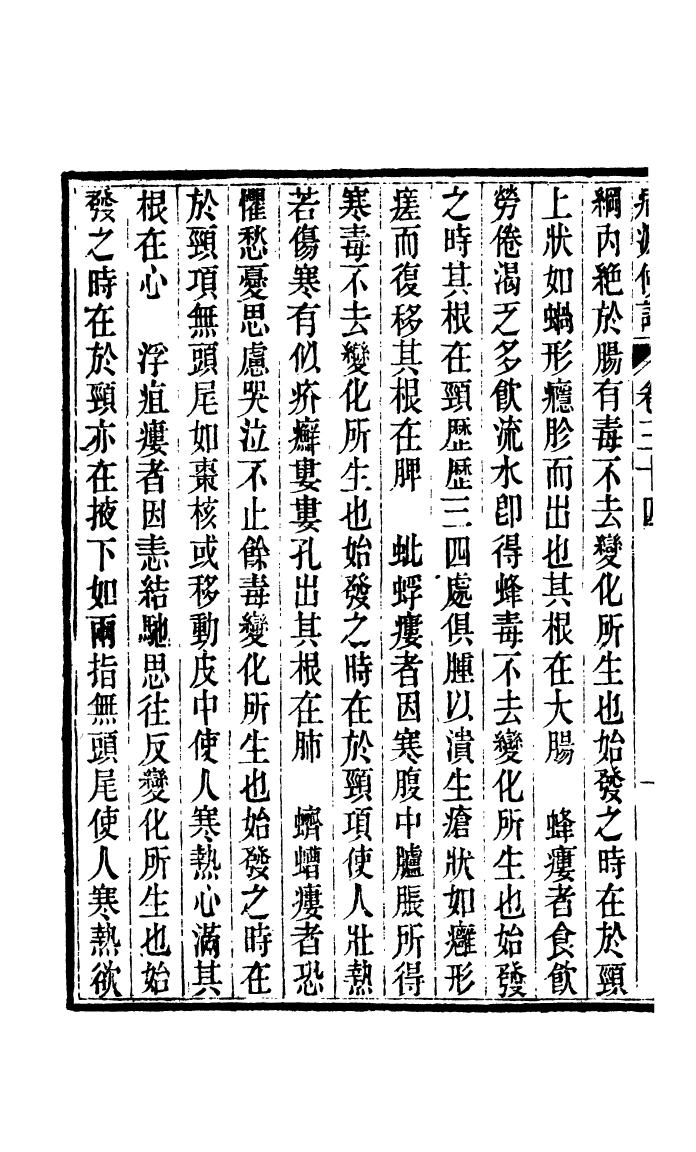 病源候論 卷三十四
綱內絶於腸有毒不去變化所生也始發之時在於頸
上狀如蝸形癮胗而出也其根在大腸　蜂瘻者食飲
勞倦渴乏多飲流水卽得蜂毒不去變化所生也始發
之時其根在頸歷歷三四處俱腫以潰生瘡狀如癰形
瘥而復移其根在脾　蚍蜉瘻者因寒腹中臚脹所得
寒毒不去變化所生也始發之時在於頸項使人壯熱
若傷寒有似疥癬婁婁孔出其根在肺　蠐螬瘻者恐
懼愁憂思慮哭泣不止餘毒變化所生也始發之時在
於頸項無頭尾如棗核或移動皮中使人寒熱心滿其
根在心　浮疽瘻者因恚結馳思往反變化所生也始
發之時在於頸亦在掖下如兩指無頭尾使人寒熱欲